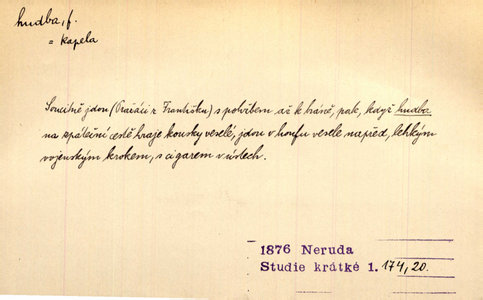 hudba, f.
= kapela
Soucitně jdou (Pražáci z Františku) s pohřbem až k bráně, pak, když hudba
na zpáteční cestě hraje kousky veselé, jdou v houfu vesele napřed, lehkým
vojenským krokem, s cigarem v ústech.
1876 Neruda
Studie krátké 1. 174, 20.